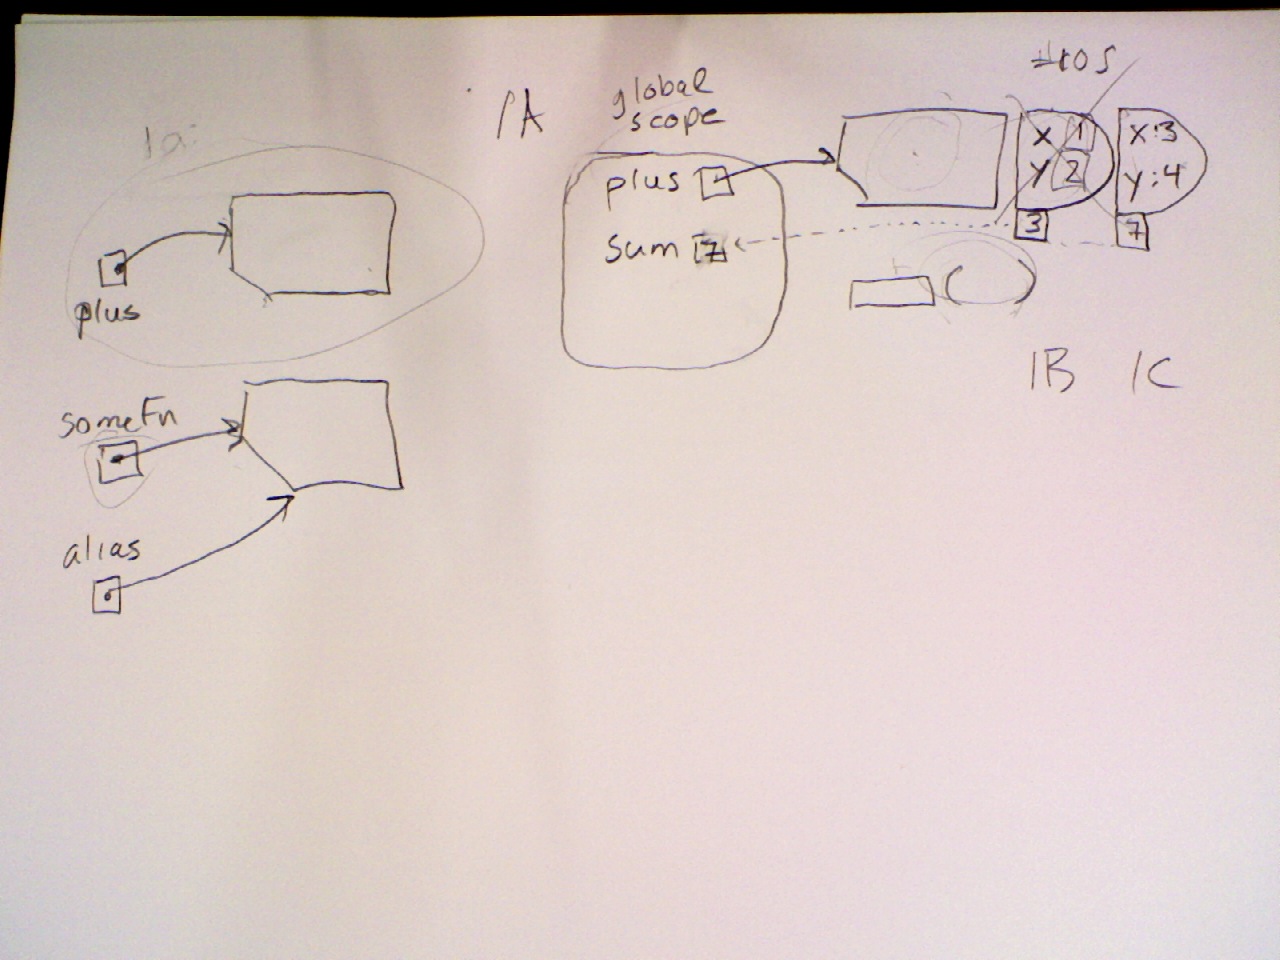 1a:
plus
someFn
alias
1A
global
scope
plus
sum 7
x 1
y 2
3
x:3
y:4
7
( )
1B 1C